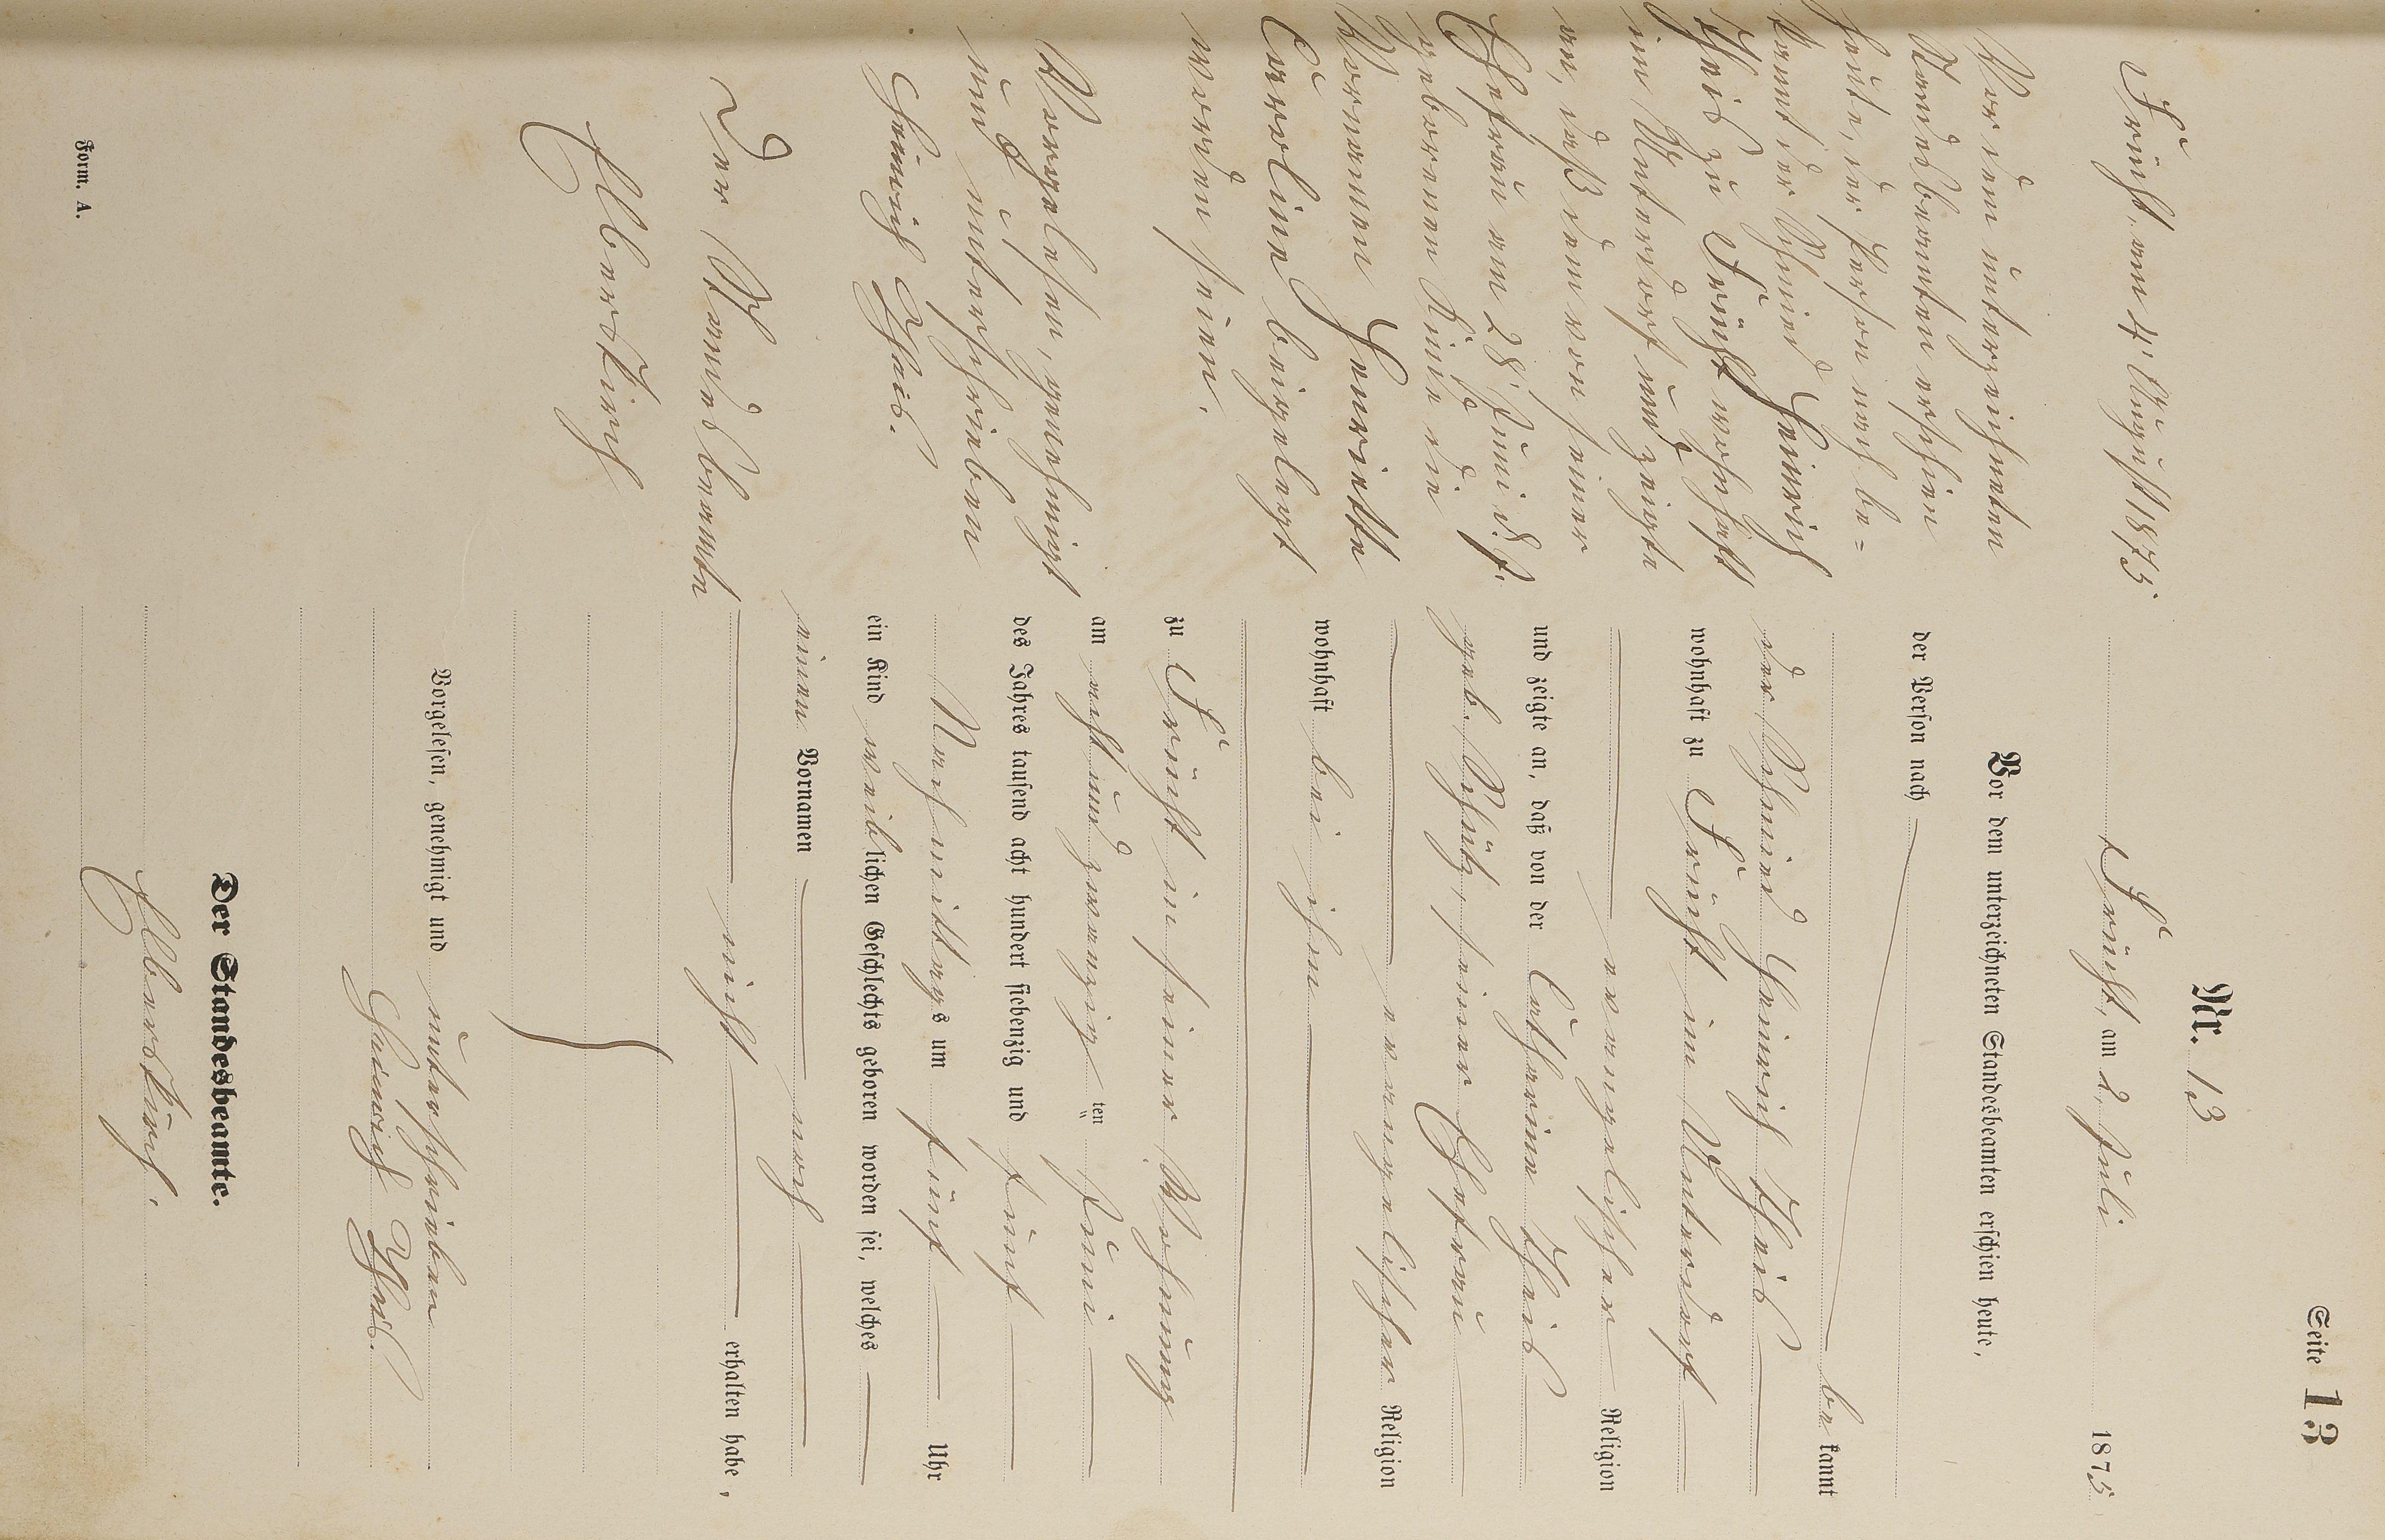 Seite 13
Nr. 13
Frücht, am 2. Juli 1875
Vor dem unterzeichneten Standesbeamten erschien heute,
der Person nach
be kannt
der Schmied Heinrich Theis
wohnhaft zu Frücht im Unterdorf
evangelischer Religion
und zeigte an, daß von der Catharine Theis
geb. Schütz, seiner Ehefrau
evangelischer Religion
wohnhaft bei ihm
zu Frücht in seiner Wohnung
am acht und zwanzig ten Juni
des Jahres tausend acht hundert siebenzig und fünf
Nachmittags um fünf Uhr
ein Kind weiblichen Geschlechts geboren worden sei, welches
einen Vornamen noch
nicht erhalten habe,
Vorgelesen, genehmigt und unterschrieben
Heinrich Theis.
Der Standesbeamte.
Elberskirch.
Frücht, am 4. August 1875.
Vor dem unterzeichneten
Standesbeamten erschien
heute, der Person nach be=
kannt der Schmied Heinrich
Theis zu Frücht wohnhaft
im Unterdorf und zeigte
an, daß dem von seiner
Ehefrau am 28. Juni d. J.
geborenen Kinde die
Vornamen Henriette
Caroline beigelegt
worden seien.
Vorgelesen, genehmigt
und unterschrieben
Heinrich Theis.
Der Standesbeamte
Elberskirch
Form. A.